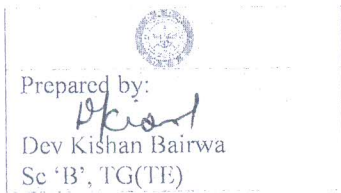 Prepared by:
Dev Kishan Bairwa
Sc ‘B’, TG(TE)